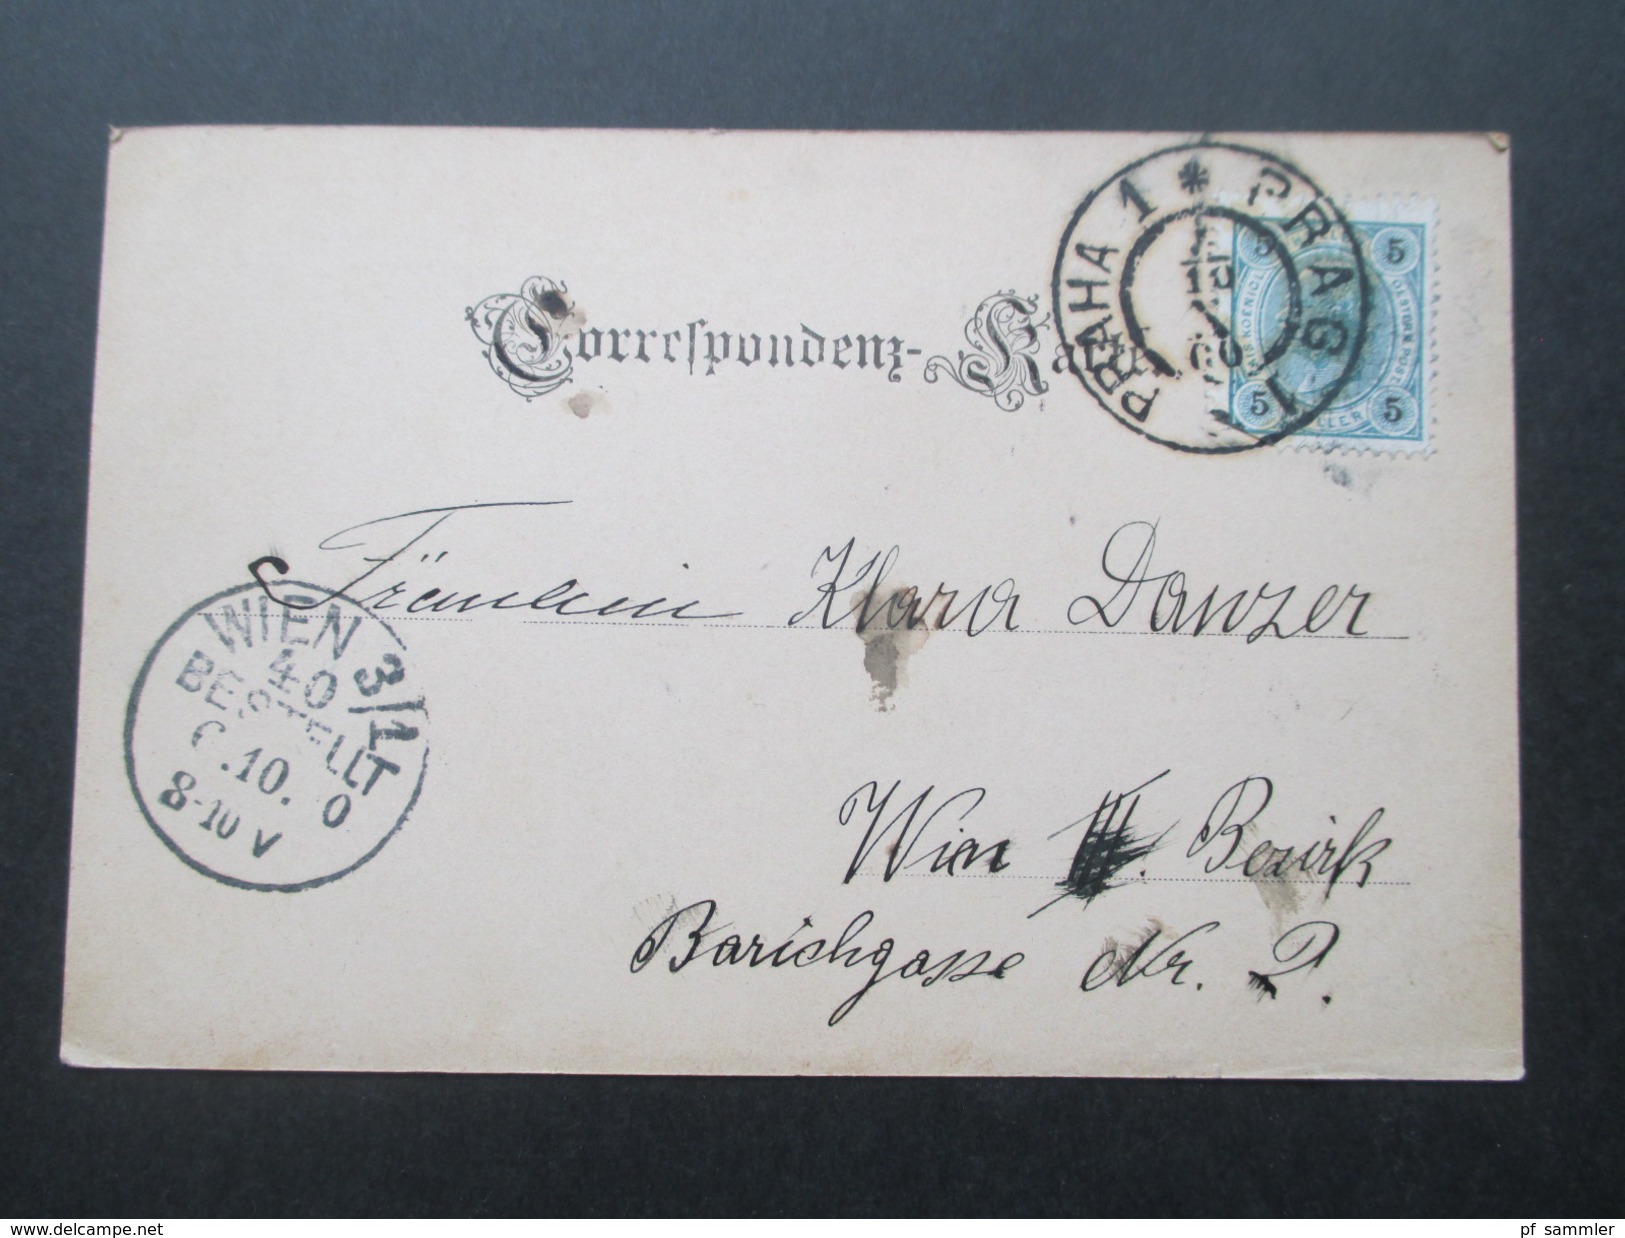 Correspondenz-Karte
PRAHA 1 * PRAG 1
5 5
5 5
HELLER
Fräulein Klara Danzer
WIEN 3/1
40
BESTELLT
.10. 0
8-10 V
Wien III. Bezirk
Barichgasse Nr. 2.
www.delcampe.net
pf_sammler